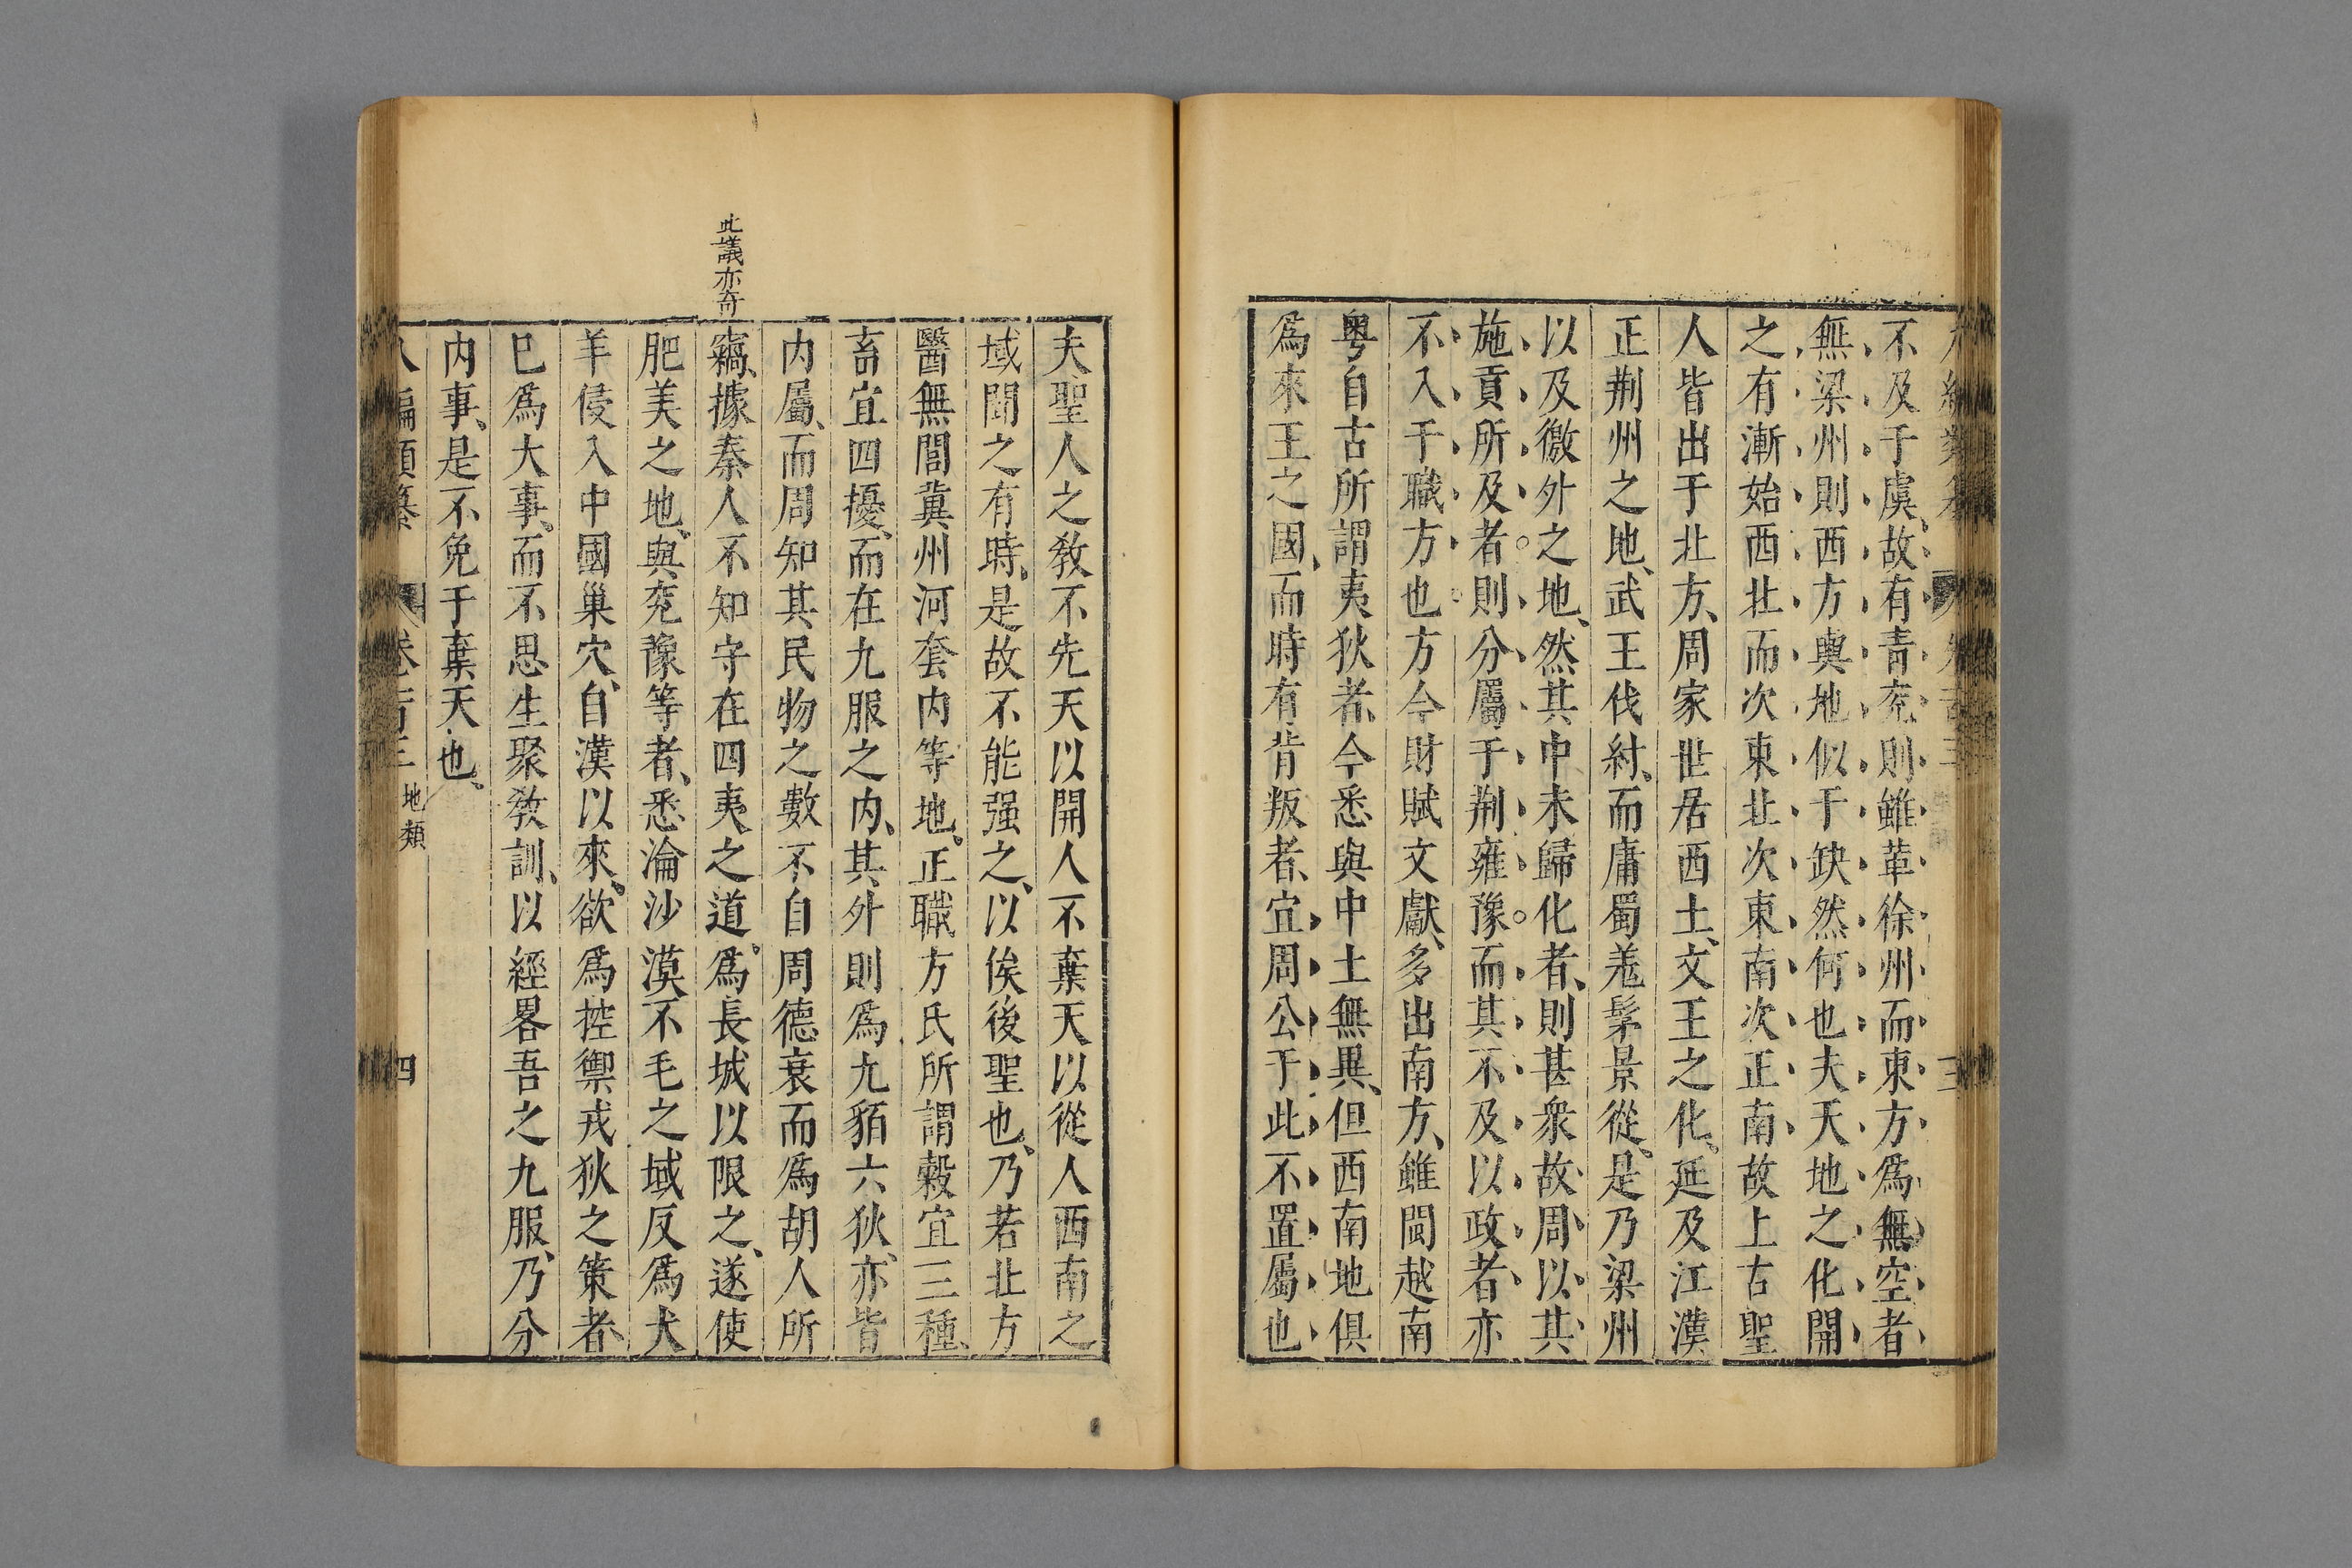 不及于虞、故有青兗則雖革徐州而東方爲無空者
無梁州則西方輿地似于缺然何也夫天地之化開
之有漸始西北而次東北次東南次正南故上古聖
人皆出于北方、周家世居西土、文王之化、延及江漢
正荆州之地、武王伐紂、而庸蜀羌髳景從、是乃梁州
以及徼外之地、然其中未歸化者、則甚衆故周以其
施貢所及者。則分屬于荆雍豫。而其不及以政者亦
不入于職方也。方今財賦文獻、多出南方、雖閩越南
粤自古所謂夷狄者、今悉與中土無異、但西南地俱
爲來王之國、而時有背叛者、宜周公于此不置屬也
夫聖人之敎不先天以開人不棄天以從人西南之
域開之有時、是故不能强之、以俟後聖也、乃若北方
醫無閭冀州河套内等地、正職方氏所謂穀宜三種、
畜宜四擾、而在九服之内、其外則爲九貊六狄、亦皆
内屬、而周知其民物之數不自周德衰而爲胡人所
竊、據秦人不知守在四夷之道。爲長城以限之、遂使
肥美之地、與兗豫等者、悉淪沙漠不毛之域反爲犬
羊侵入中國巢穴、自漢以來、欲爲控禦戎狄之策者、
已爲大事、而不思生聚敎訓、以經畧吾之九服、乃分
内事、是不免于棄天也、
此議亦奇
八編類纂 卷 地類 四